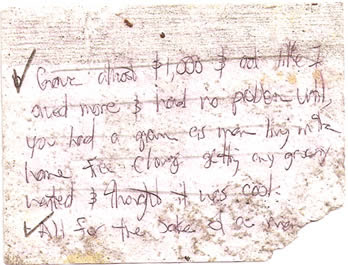 Gave almost $1,000 & act like I
owed more & had no problem with
you had a grown es man living in the
home free
wanted & thought it was cool.
All for the sake of a man